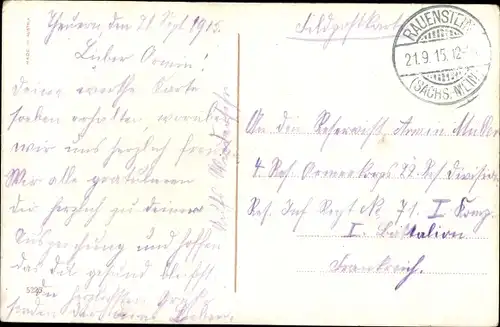 Theuern, den 21 Sept 1915.
Lieber Armin!
Deine werthe Karte
soeben erhalten, worüber
wir uns herzlich freuen
Wir alle gratulieren
dir herzlich zu deiner
Auszeichnung und hoffen
das du gesund bleibst
die herzlichsten Grüße
senden dir
Auf Wiedersehn
5225
Feldpostkarte
RAUENSTEIN
21.9.15. 12-
(SACHS. MEIN.)
An den Reservist Armin Müller
4. Res Armeekorps 22. Res Division
Res. Inf Regt No 71. I Komp.
I. Battalion
Frankreich.